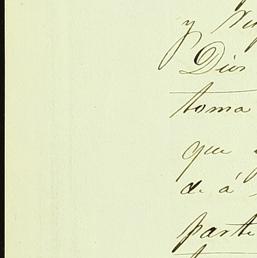 y
Dios
toma
que
de á
parte